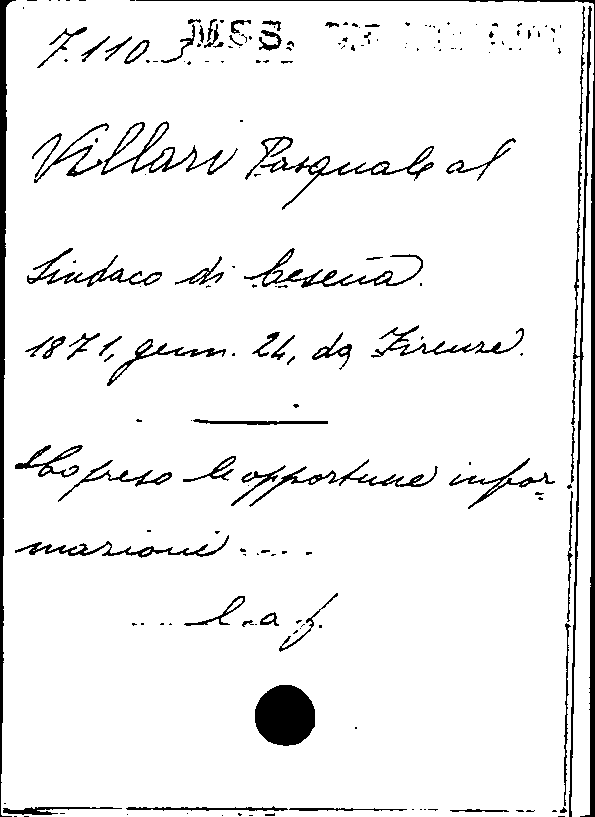 7.110.3 MSS.
Villari Pasquale al
Sindaco di Cesena.
1871, genn. 24, da Firenze.
Ho preso le opportune infor-
mazioni .....
.... l. a f.